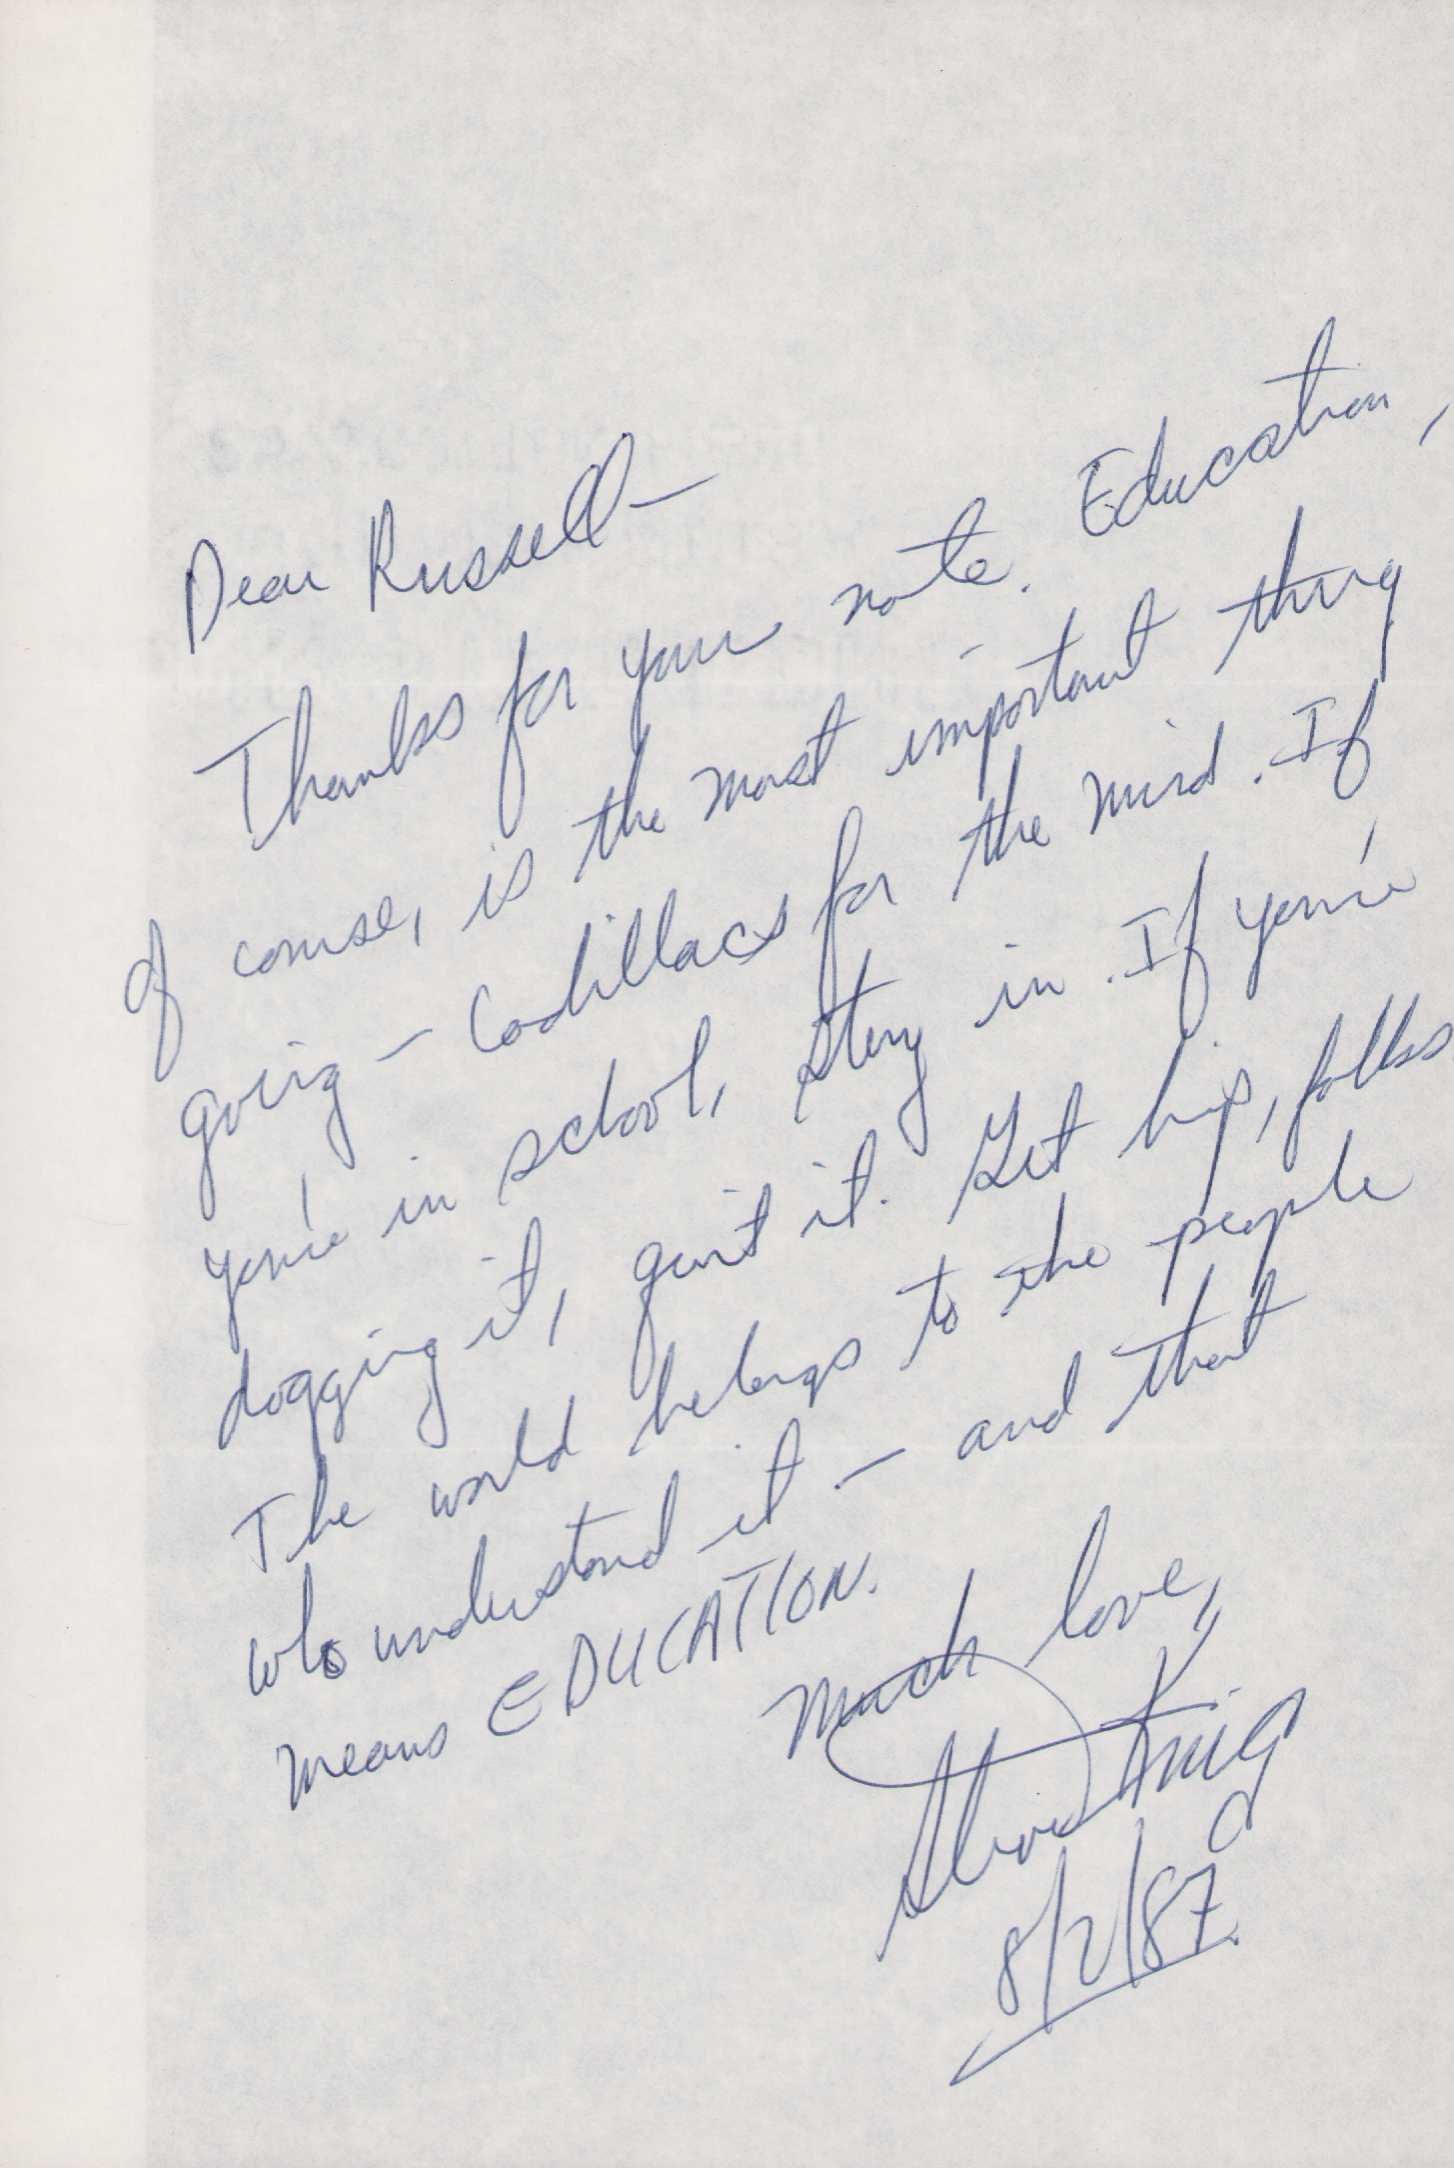 Dear Russell —
Thanks for your note. Education,
of course, is the most important thing
going — Cadillacs for the mind. If
you're in school, stay in. If you're
dogging it, quit it. Get hip, folks
The world belongs to the people
who understand it — and that
means EDUCATION.
Much love,
Stephen King
8/2/87